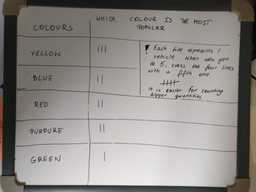 COLOURS
WHICH COLOUR IS THE MOST
POPULAR
YELLOW |||
BLUE ||
RED ||
PURPURE ||
GREEN |
Each line represents 1
vehicle. When you get
to 5, cross the four lines
with a fifth one
it is easier for counting
bigger quantities